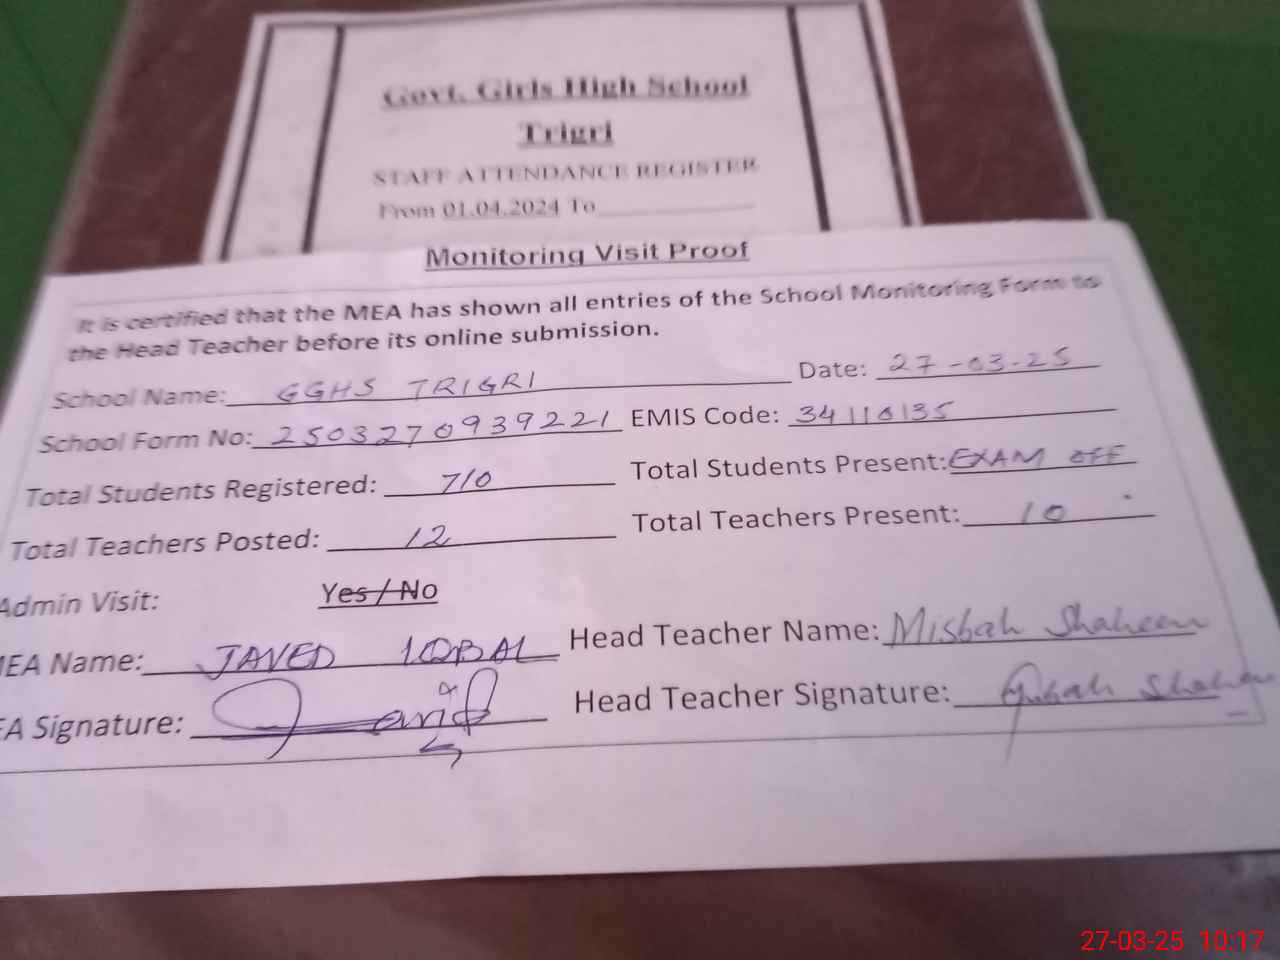 Govt. Girls High School
Trigri
STAFF ATTENDANCE REGISTER
From 01.04.2024 To
Monitoring Visit Proof
It is certified that the MEA has shown all entries of the School Monitoring Form to
the Head Teacher before its online submission.
School Name: GGHS TRIGRI Date: 27-03-25
School Form No: 2503270939221 EMIS Code: 34110135
Total Students Registered: 710 Total Students Present: EXAM OFF
Total Teachers Posted: 12 Total Teachers Present: 10
Admin Visit: Yes / No
MEA Name: JAVED IQBAL Head Teacher Name: Misbah Shaheen
EA Signature: Head Teacher Signature: Misbah Shaheen
27-03-25 10:17